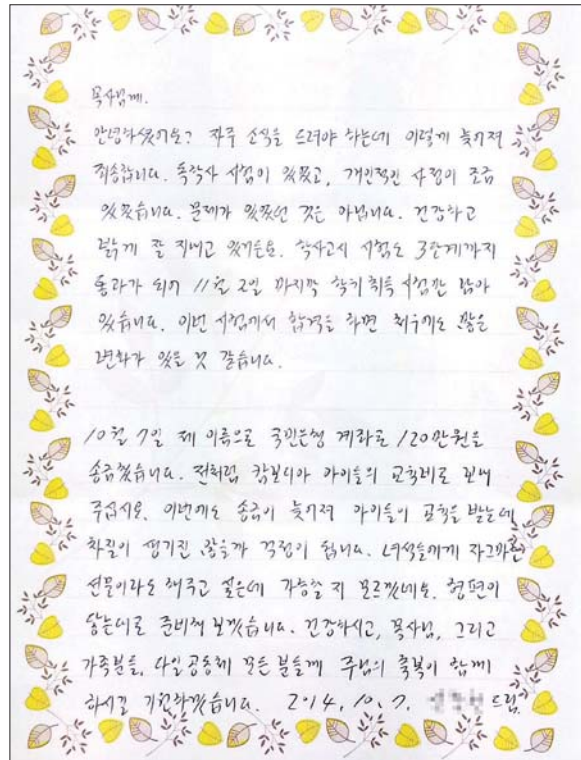 목사님께.
안녕하셨어요? 자주 소식을 드려야 하는데 이렇게 늦어져
죄송합니다. 독학사 시험이 있었고, 개인적인 사정이 조금
있었습니다. 문제가 있었던 것은 아닙니다. 건강하고
밝게 잘 지내고 있거든요. 학사고시 시험도 3단계까지
통과가 되어 11월 2일 마지막 학위취득 시험만 남아
있습니다. 이번 시험에서 합격을 하면 처우에도 많은
변화가 있을 것 같습니다.
10월 7일 제 이름으로 국민은행 계좌로 120만원을
송금했습니다. 전처럼 캄보디아 아이들의 교육비로 보내
주십시오. 이번에도 송금이 늦어져 아이들이 교육을 받는데
차질이 생기진 않을까 걱정이 됩니다. 녀석들에게 자그마한
선물이라도 해주고 싶은데 가능할 지 모르겠네요. 형편이
닿는대로 준비해 보겠습니다. 건강하시고, 목사님, 그리고
가족분들, 다일공동체 모든 분들께 주님의 축복이 함께
하시길 기원하겠습니다. 2014. 10. 7. 드림.